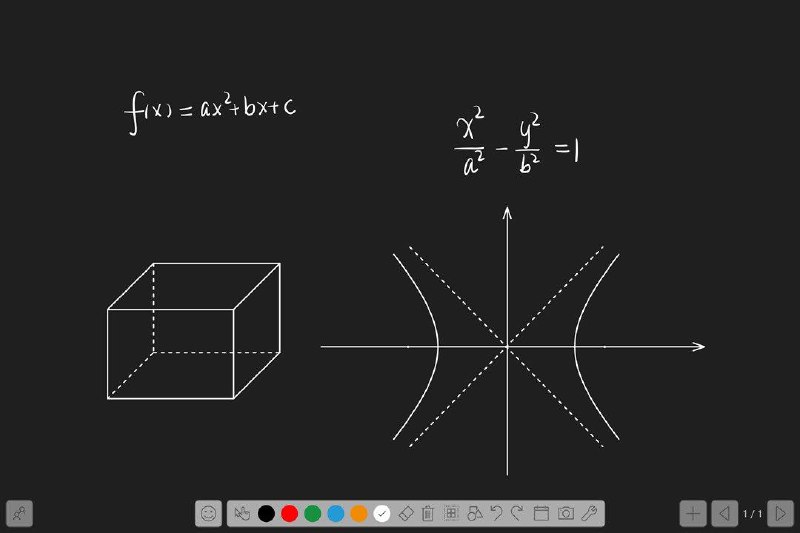 f(x) = ax²+bx+c
x²/a² - y²/b² = 1
1 / 1